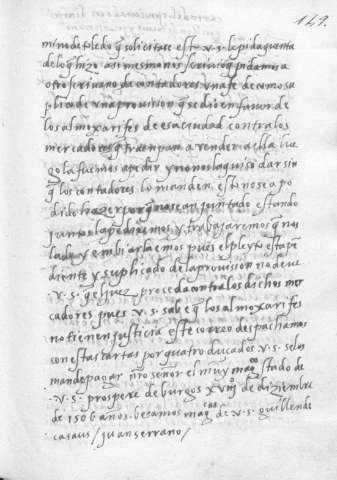 149.
mino de toledo q̃ solicitase esto v. s. le pida quenta
de lo q̃ hizo asi mesmo nos scrivio q̃ pidamos a
otro scrivano de contadores una fe de como sa
plico de una provision q̃ se dio en favor de
los almoxarifes de esa ciudad contra los
mercaderes q̃ traen pan a vender a ella lue
go la fuimos a pedir y no nos la quiso dar sin
q̃ los contadores lo manden esto no se a po
dido hazer porq̃ no se an juntado estando
juntos la pediremos y trabajaremos q̃ nos
la de y embiarla emos pues el pleyto esta pe
diente y suplicado de la provission no deve
v. s. q̃ el juez proceda contra los dichos mer
cadores pues v. s. sabe q̃ los almoxarifes
no tienen justicia este correo despachamos
con estas cartas por quatro ducados v. s. se los
mande pagar nr̃o señor el muy mag.co estado de
.v. s. prospere de burgos xviij de diziembre
de 1506 años. besamos mag.cas de v. s. guillen de
casaus / juan serrano /